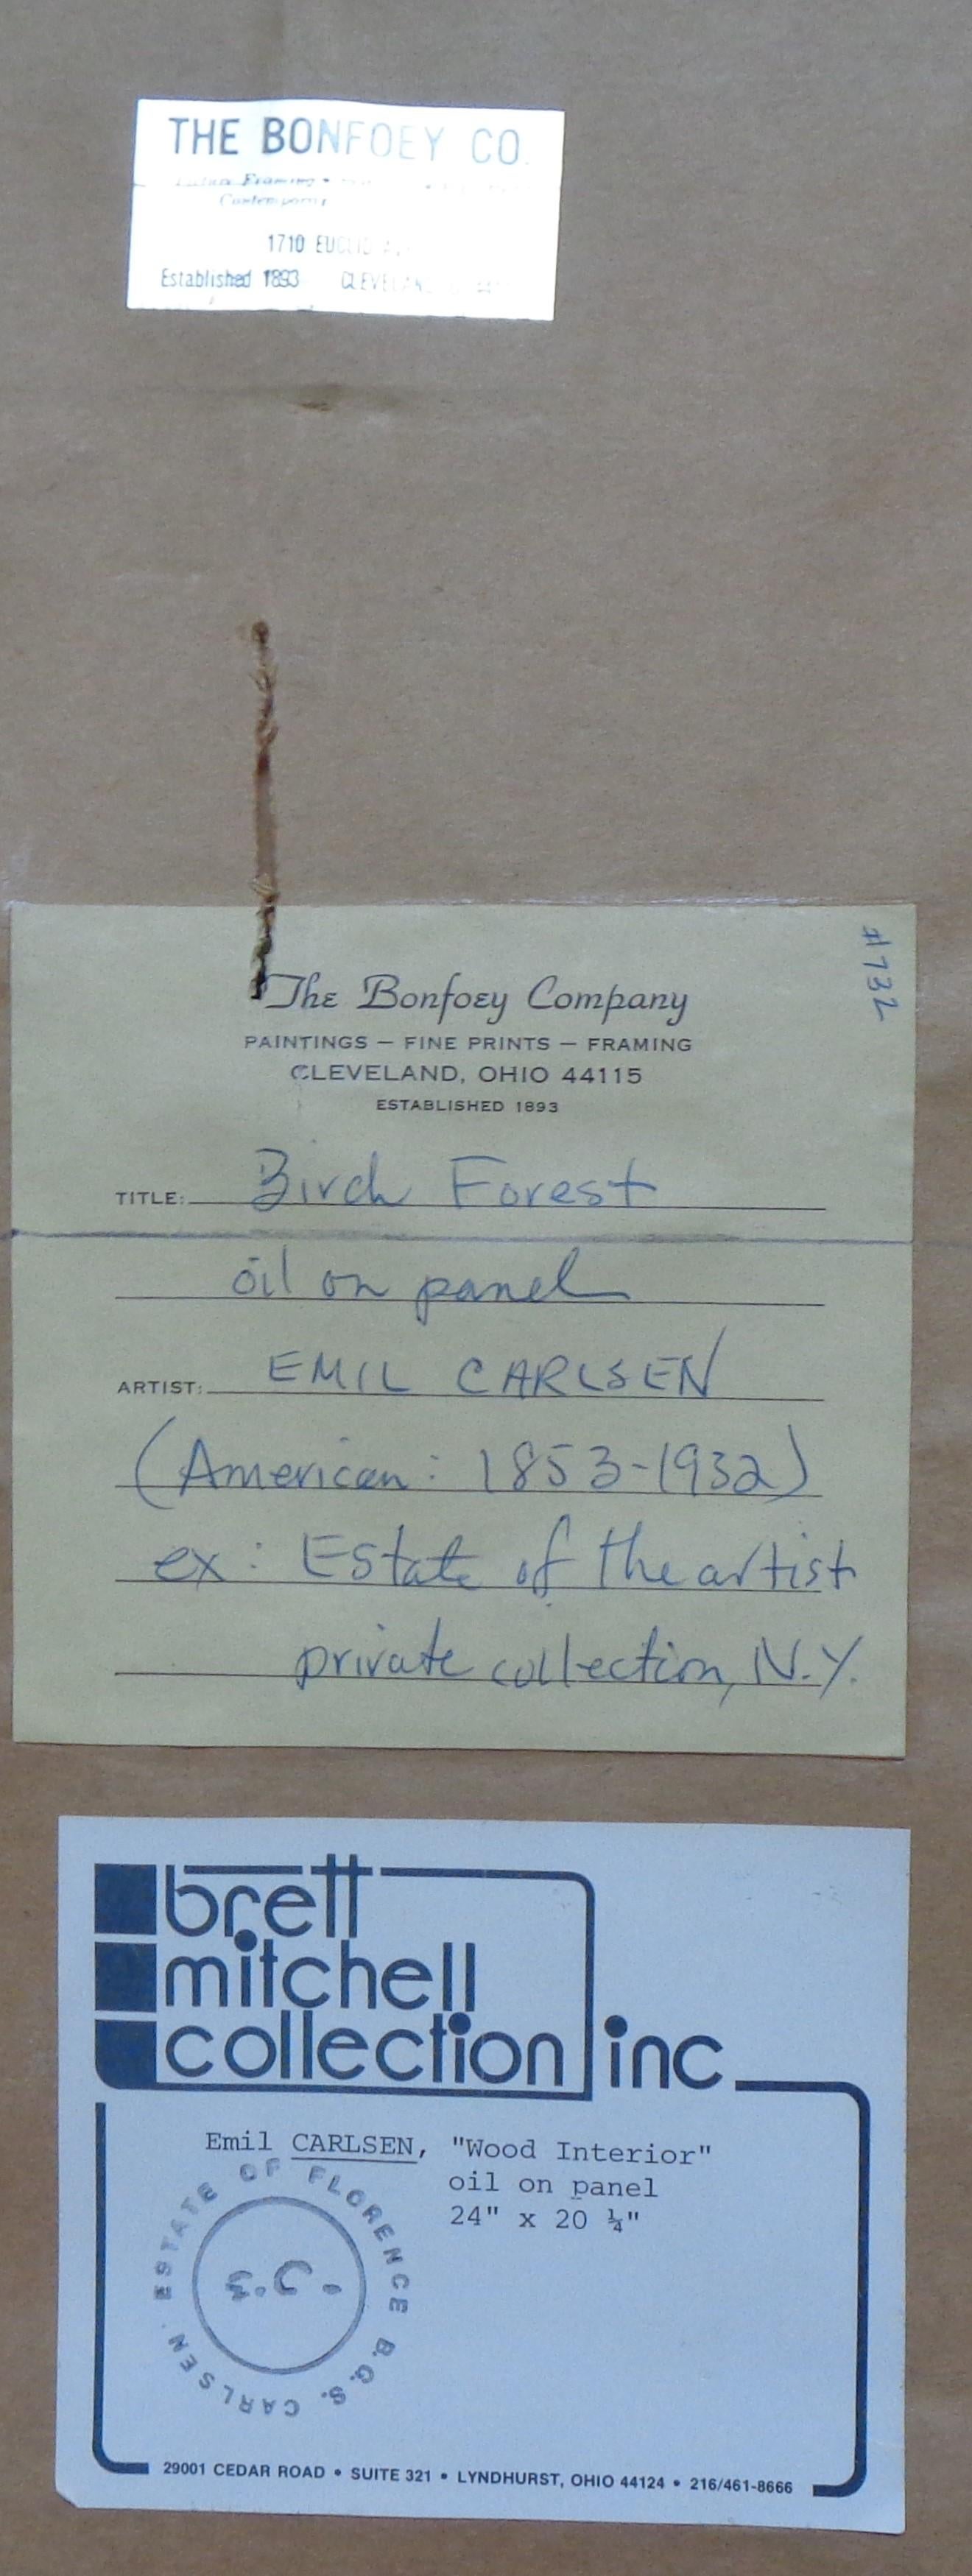 THE BONFOEY CO.
Framing
Contemporary
1710 EUCLID
Established 1893 CLEVELAND
#732
The Bonfoey Company
PAINTINGS — FINE PRINTS — FRAMING
CLEVELAND, OHIO 44115
ESTABLISHED 1893
TITLE: Birch Forest
oil on panel
ARTIST: EMIL CARLSEN
(American: 1853-1932)
ex: Estate of the artist
private collection, N.Y.
brett
mitchell
collection inc
Emil CARLSEN, "Wood Interior"
oil on panel
24" x 20 ¼"
ESTATE OF FLORENCE B.G.S. CARLSEN
29001 CEDAR ROAD • SUITE 321 • LYNDHURST, OHIO 44124 • 216/461-8666